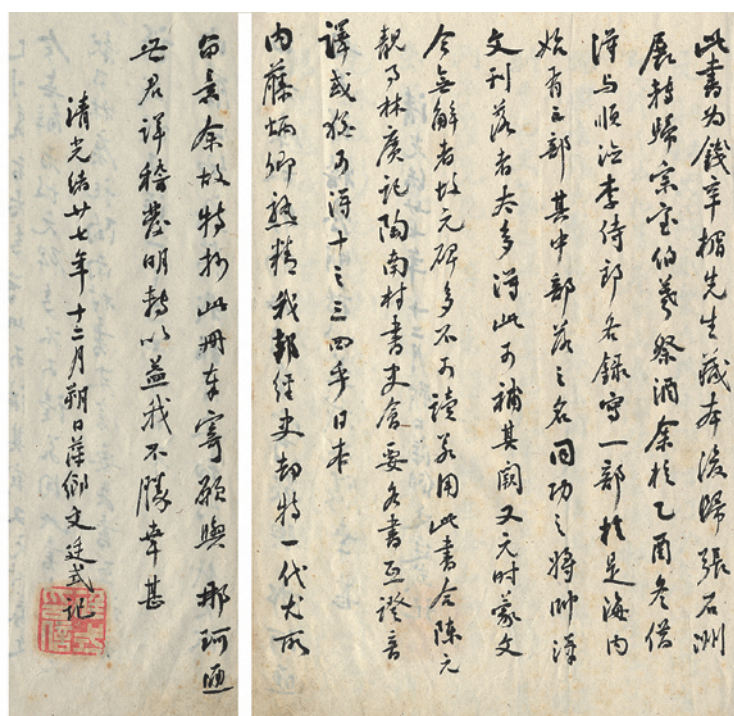 此書为錢辛楣先生藏本後歸張石洲
展轉歸宗室伯羲祭酒余於乙酉冬借
得与順德李侍郎各錄寫一部於是海内
始有三部其中部落之名同功之將帥漢
文刊落者太多得此可補其闕又元時蒙文
今無解者故元碑多不可讀若用此書合陳元
靚事林廣記陶南村書史會要各書互證音
譯或猶可得十之三四乎日本
内藤炳卿熟精我邦經史却特一代尤所
留意余故特抄此冊奉寄願與那珂通
世君詳稽發明轉以益我不勝幸甚
清光緒廿七年十二月朔日萍鄉文廷式記